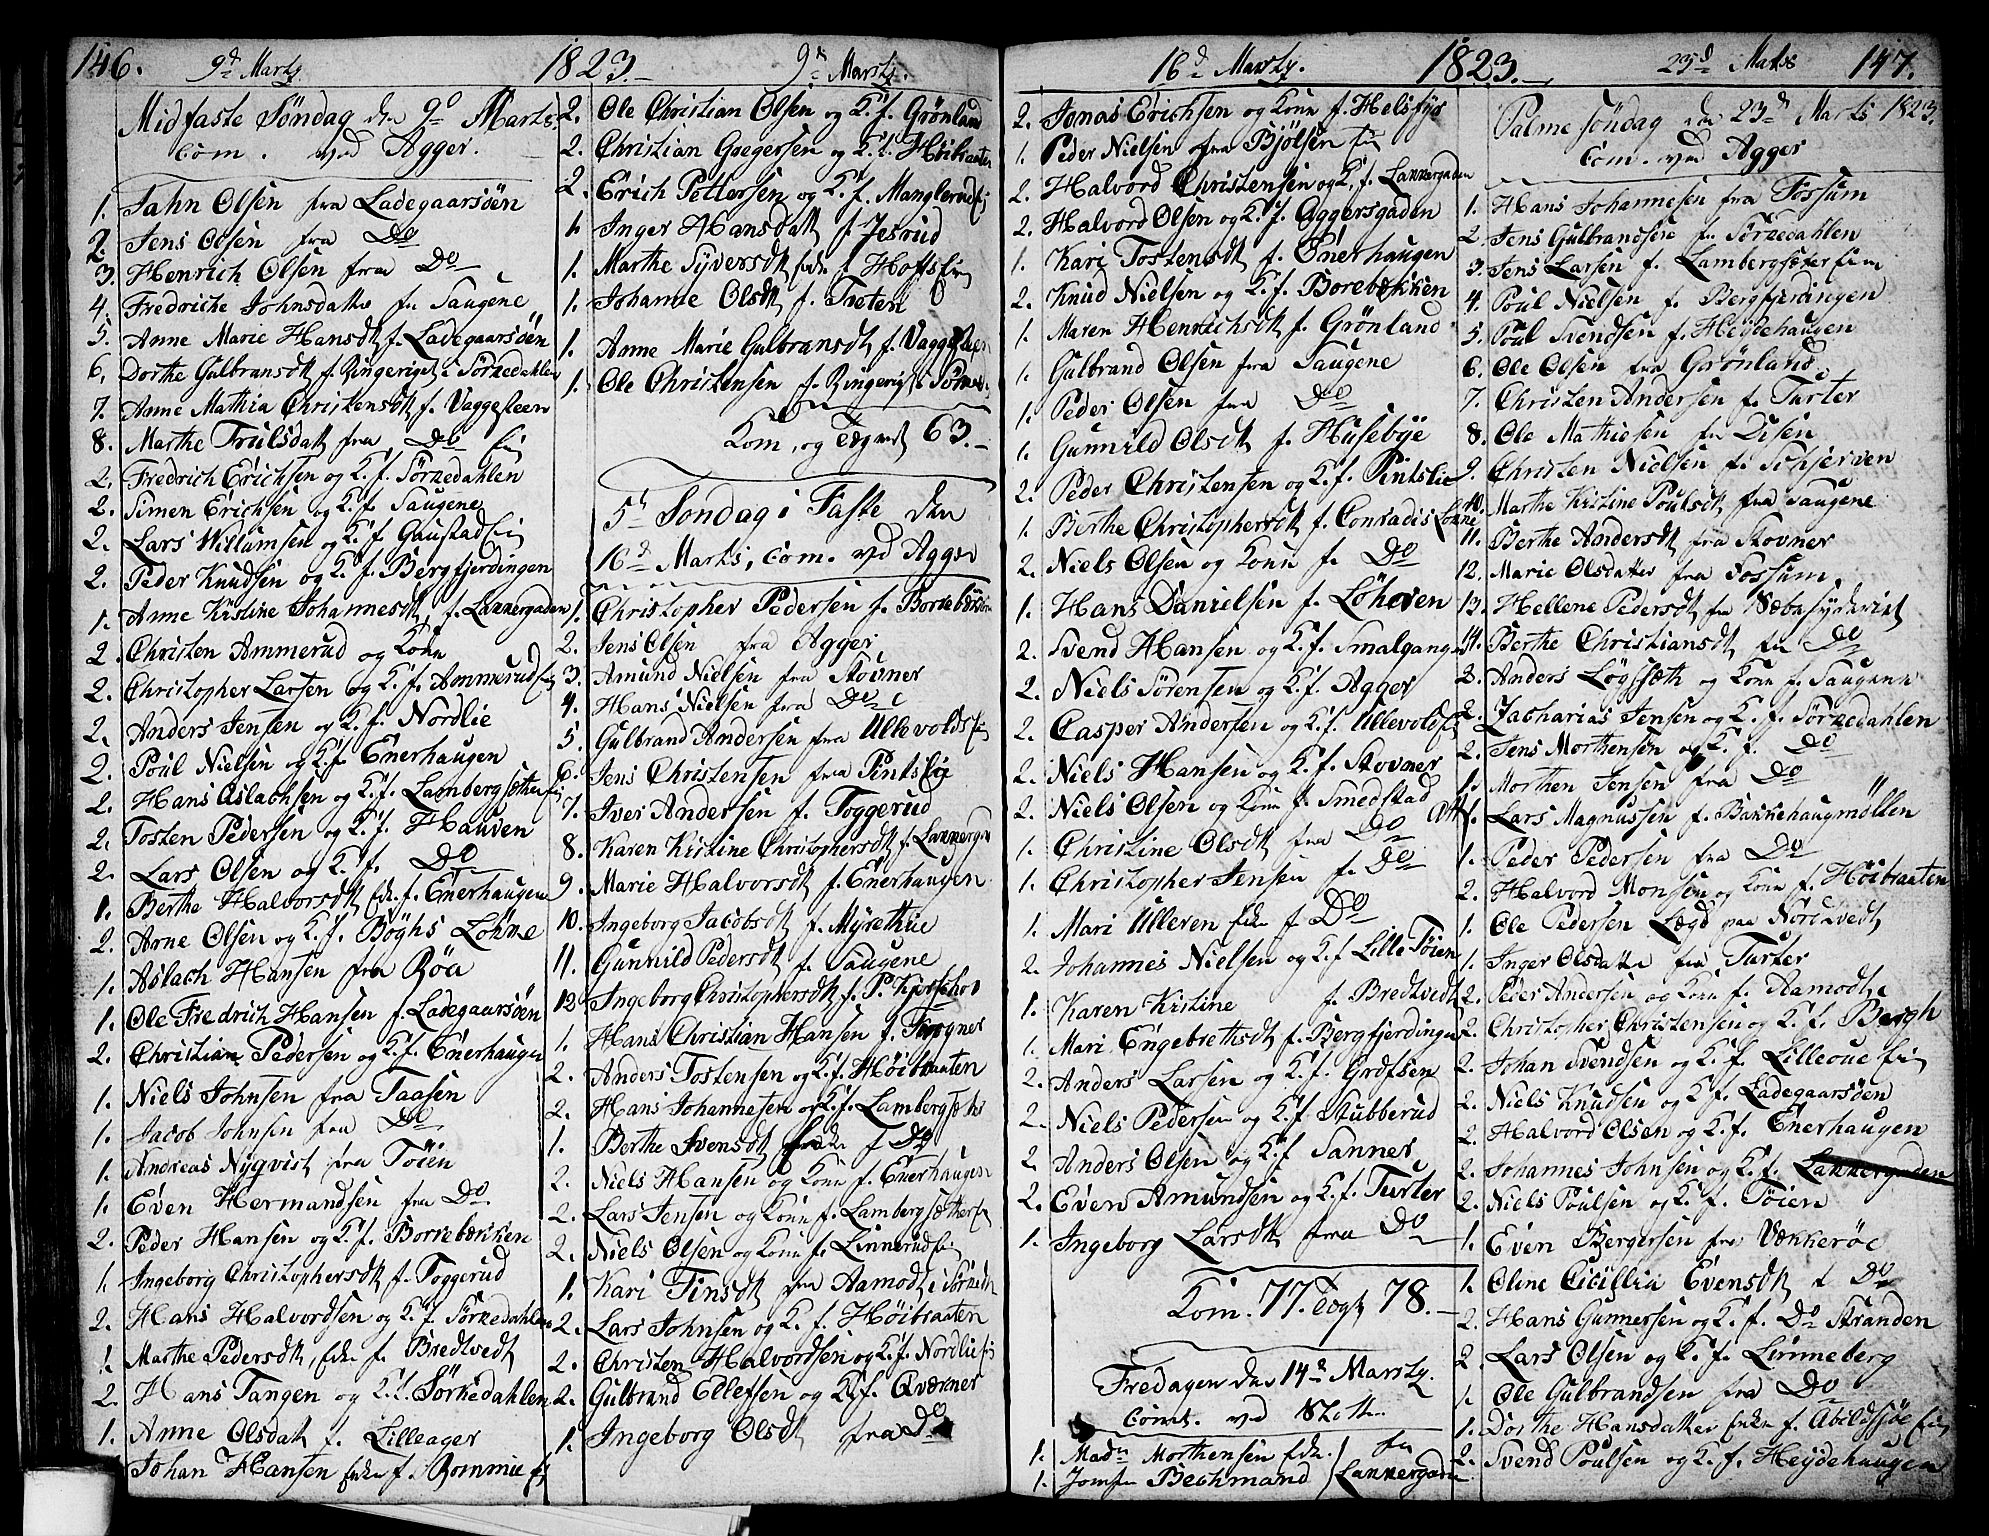 146. 9d Marts 1823. 9d Marts.
Midfaste Søndag den 9d Marts
Com. ved Agger.
1. Jahn Olsen fra Ladegaarsøen
2. Jens Olsen fra Do
3. Henrich Olsen fraa Do
4. Fredriche Johnsdatter f. Saugene
5. Anne Marie Hansdt f. Ladegaarsöen
6. Dorthe Gulbransdt f. Ringeriget i Sörkedahlen
7. Anne Mathia Christensdt f. Vaggesteen
8. Marthe Trulsdatt fra Do
2. Fredrich Erichsen og K. f. Sörkedahlen
2. Simen Erichsen og K. f. Saugene
2. Lars Willumsen og K. f. Gaustad
2. Peder Knudsen og K. f. Bergfjerdingen
1. Anne Kristine Johannesdt f. Lakkergaden
2. Christen Ammerud og Konn
2. Christopher Larsen og K. f. Ammerud
2. Anders Jensen og K. f. Nordlie
2. Poul Nielsen og K. f. Enerhaugen
2. Hans Aslachsen og K. f. Lambergsæther
2. Tosten Pedersen og K. f. Hauven
2. Lars Olsen og K. f. Do
1. Berthe Halvorsdt Enke f. Enerhaugen
2. Arne Olsen og K. f. Böghs Löhne
1. Aslach Hansen fra Röa
1. Ole Fredrich Hansen f. Ladegaarsöen
2. Christian Pedersen og K. f. Enerhaugen
1. Niels Johnsen fra Taasen
1. Jacob Johnsen fra Do
1. Andreas Nyqvist fra Töien
1. Even Hermandsen fra Do
2. Peder Hansen og K. f. Borrebækken
1. Ingeborg Christophersdt f. Toggerud
2. Hans Halvordsen og K. f. Sörkedahlen
1. Marthe Pedersdt, Enke f. Bredtvedt
2. Hans Tangen og K. f. Sörkedahlen
1. Anne Olsdatt f. Lilleager
Johan Hansen Enke f. Rommie
2. Ole Christian Olsen og K. f. Grönland
2. Christian Gregersen og K. f. Höibraaten
2. Erich Pettersen og K. f. Manglerud
1. Inger Hansdatt f. Jesrud
1. Marthe Syversdt Enke f. Hoffs
1. Johanne Olsdt f. Treten
1. Anne Marie Gulbransdt f. Vaggesteen
1. Ole Christensen f. Ringeriget i
Kom. og Tegnet 63.
5te Søndag i Faste den
16d Marts, Com. ved Agger
1. Christopher Pedersen f. Borrebækken
2. Jens Olsen fra Agger
3. Amund Nielsen fra Stovner
4. Hans Nielsen fra Do
5. Gulbrand Andersen fra Ullevolds
6. Jens Christensen fra Pintslie
7. Iver Andersen f. Toggerud
8. Karen Kristine Christophersdt f. Lakkergd
9. Marie Halvorsdt f. Enerhaugen
10. Ingeborg Jacobsdt f. Myrethue
11. Gunnild Pedersdt f. Saugene
12. Ingeborg Christophersdt f. P.
1. Hans Christian Hansen f.
2. Anders Tostensen og K. f. Höibraaten
2. Hans Johannesen og K. f. Lambergsæth
1. Berthe Svensdt Enke f. Do
2. Niels Hansen og Konn f. Enerhaugen
2. Lars Jensen og Konn f. Lambergsæther
2. Niels Olsen og Konn f. Linnerud
1. Kari Finsdt fra Aamodt i Sörkedt
2. Lars Johnsen og K. f. Höibraaten
2. Christen Halvordsen og K. f. Nordlie
2. Gulbrand Ellefsen og K. f. Qværner
1. Ingeborg Olsdt fra Do
16d Marty. 1823. 23d Marts 147.
2. Jonas Erichsen og Konn f. Helsfys
1. Peder Nielsen fra Bjölsen
2. Halvord Christensen og K. f. Lakkergaden
2. Halvord Olsen og K. f. Aggersgaden
1. Kari Tostensdt f. Enerhaugen
2. Knud Nielsen og K. f. Borebækken
1. Maren Henrichsdt f. Grönland
1. Gulbrand Olsen fra Saugene
1. Peder Olsen fra Do
1. Gunnild Olsdt f. Husebye
2. Peder Christensen og K. f. Pintslie
1. Berthe Christophersdt f. Conradis Löhne
2. Niels Olsen og Konn f. Do
1. Hans Danielsen f. Löhoven
2. Svend Hansen og K. f. Smalgangen
2. Niels Sörensen og K. f. Agger
2. Casper Andersen og K. f. Ullevold
2. Niels Hansen og K. f. Stovner
2. Niels Olsen og Konn f. Smedstad
1. Christine Olsdt fra Do
1. Christopher Jensen f. Do
1. Mari Ulleren Enke f. Do
2. Johannes Nielsen og K. f. Lille Töien
1. Karen Kristine f. Bredtvedt
1. Mari Engebrethsdt f. Bergfjerdingen
2. Anders Larsen og K. f. Grefsen
2. Niels Pedersen og K. f. Stubberud
2. Anders Olsen og K. f. Sanner
2. Even Amundsen og K. f. Turter
1. Ingeborg Larsdt fraa Do
Kom. 77. Tegt 78.
Fredagen den 14d Marty.
Comt. ved Slott
1. Madm Morthensen Enke. fra
1. Jomfr Bechmand Lakkergaden
Palme söndag den 23d Marts 1823.
Com. ved Agger
1. Hans Johannesen fra Fossum
2. Jens Gulbrandsen f. Sörkedahlen
3. Jens Larsen f. Lambergsæter
4. Poul Nielsen f. Bergfjerdingen
5. Poul Svendsen f. Heidehaugen
6. Ole Olsen fra Grönland
7. Christen Andersen f. Turter
8. Ole Mathiesen fra Disen
9. Christen Nielsen f. Schjerven
10. Marthe Kristine Poulsdt fra Saugene
11. Berthe Andersdt fra Stovner
12. Marie Olsdatter fra Fossum
13. Hellene Pedersdt fra
14. Berthe Christiansdt fra Do
2. Anders Lögsæth og Konn f. Saugene
2. Zacharias Jensen og K. f. Sörkedahlen
2. Jens Morthensen og K. f. Do
1. Morthen Jensen fra Do
1. Lars Magnussen f. Bakkehaugmöllen
1. Peder Pedersen fra Do
2. Halvord Monsen og Konn f. Höibraaten
1. Ole Pedersen Lægd paa Nordtvedt
1. Inger Olsdatter fra Turter
2. Peder Andersen og Konn f. Aamodt
2. Christopher Christensen og K. f. Bergh
2. Johan Svendsen og K. f. Lilleoue
2. Niels Knudsen og K. f. Ladegaarsöen
2. Halvord Olsen og K. f. Enerhaugen
2. Johannes Johnsen og K. f. Lakkergaden
2. Niels Poulsen og K. f. Töien
1. Even Bergersen fra Vækkeröe
1. Oline Cicillia Evensdt f. Do
2. Hans Gunnersen og K. f. Do Stranden
2. Lars Olsen og K. f. Linneberg
1. Ole Gulbrandsen fra Do
1. Dorthe Hansdatter Enke f. Abildsjöe
2. Svend Poulsen og K. f. Heydehaugen